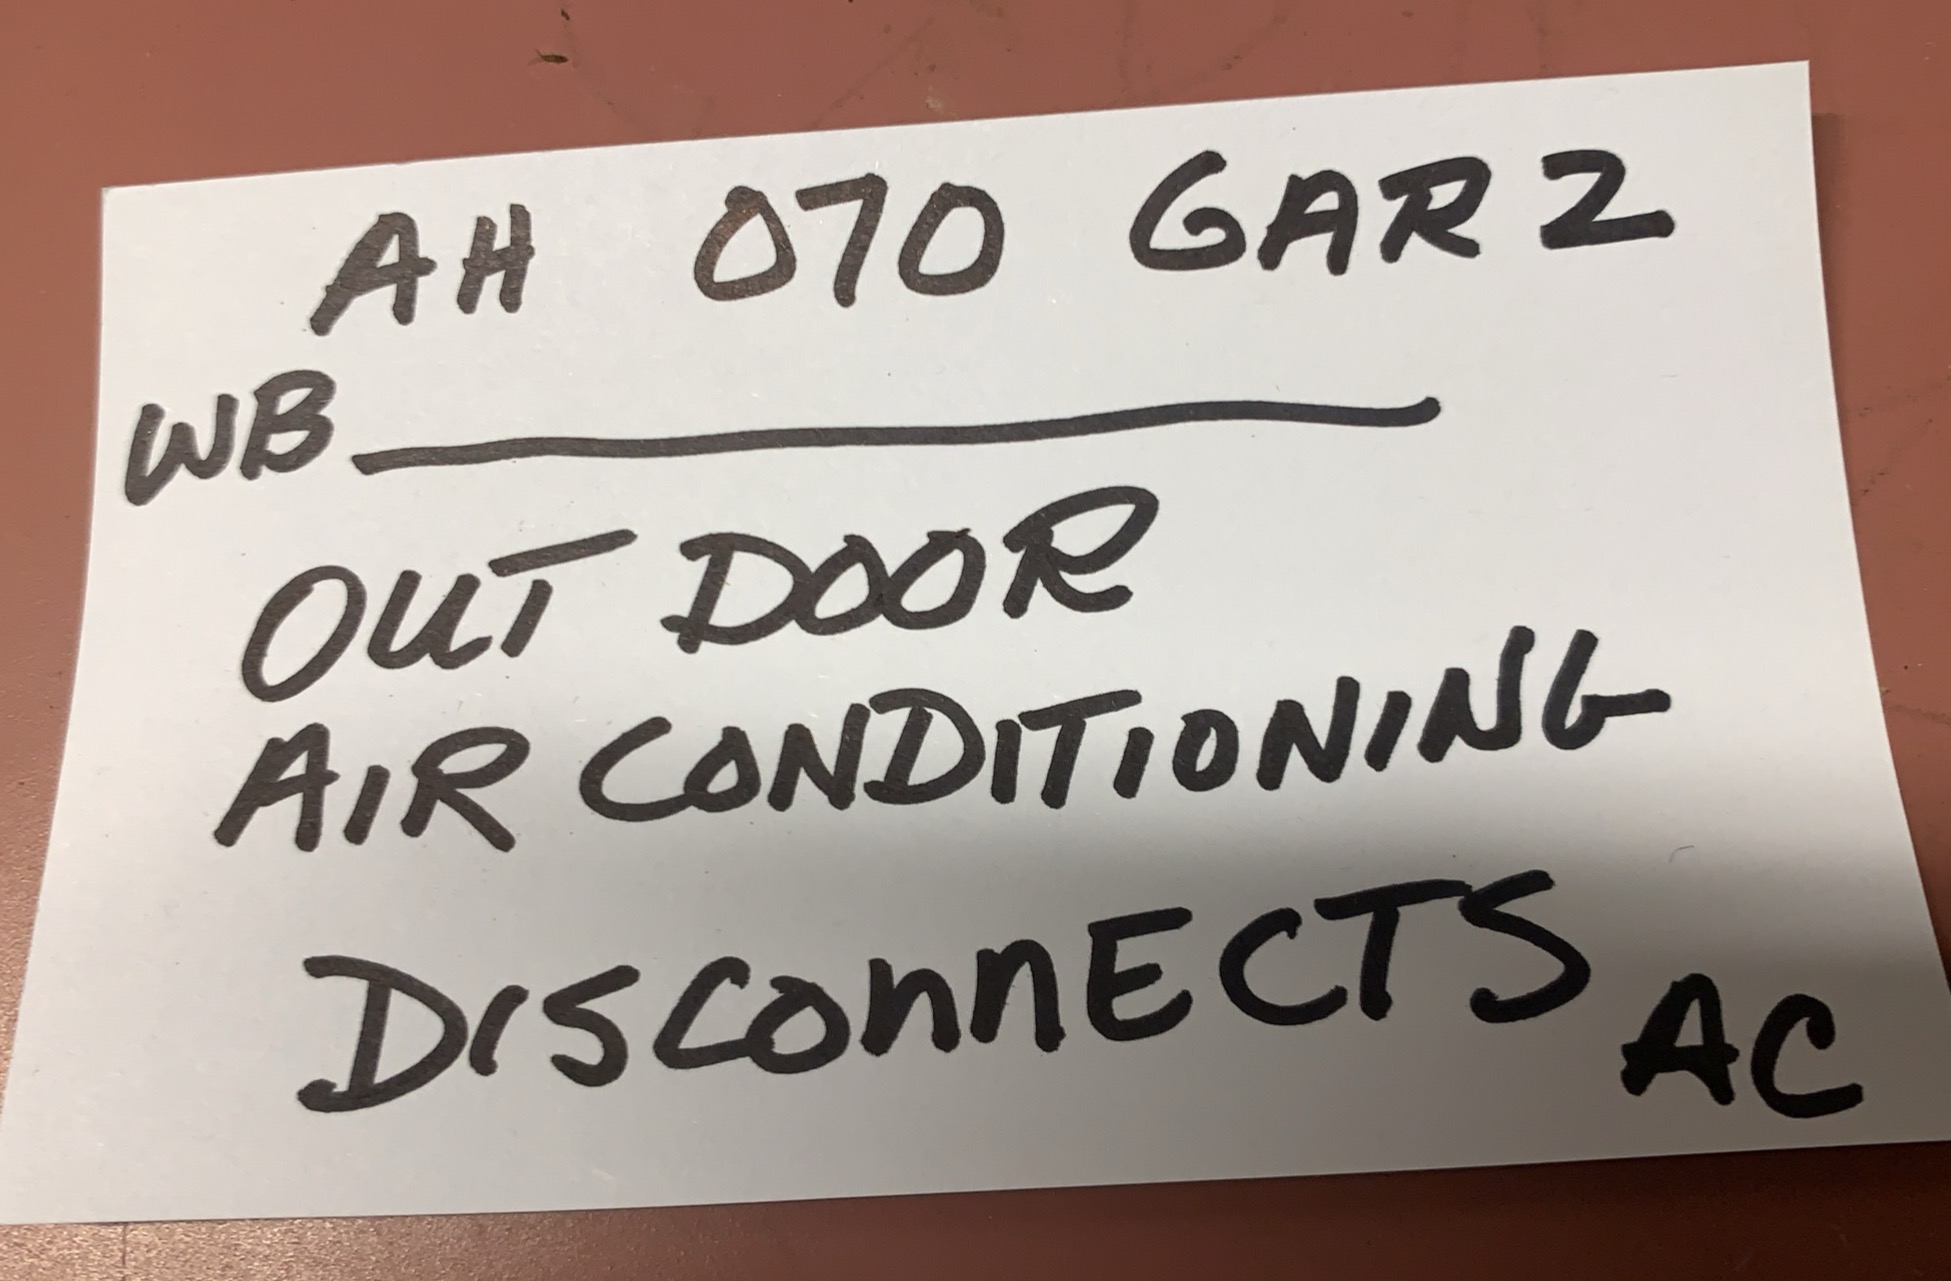 AH 070 GAR 2
WB
OUT DOOR
AIR CONDITIONING
DISCONNECTS
AC